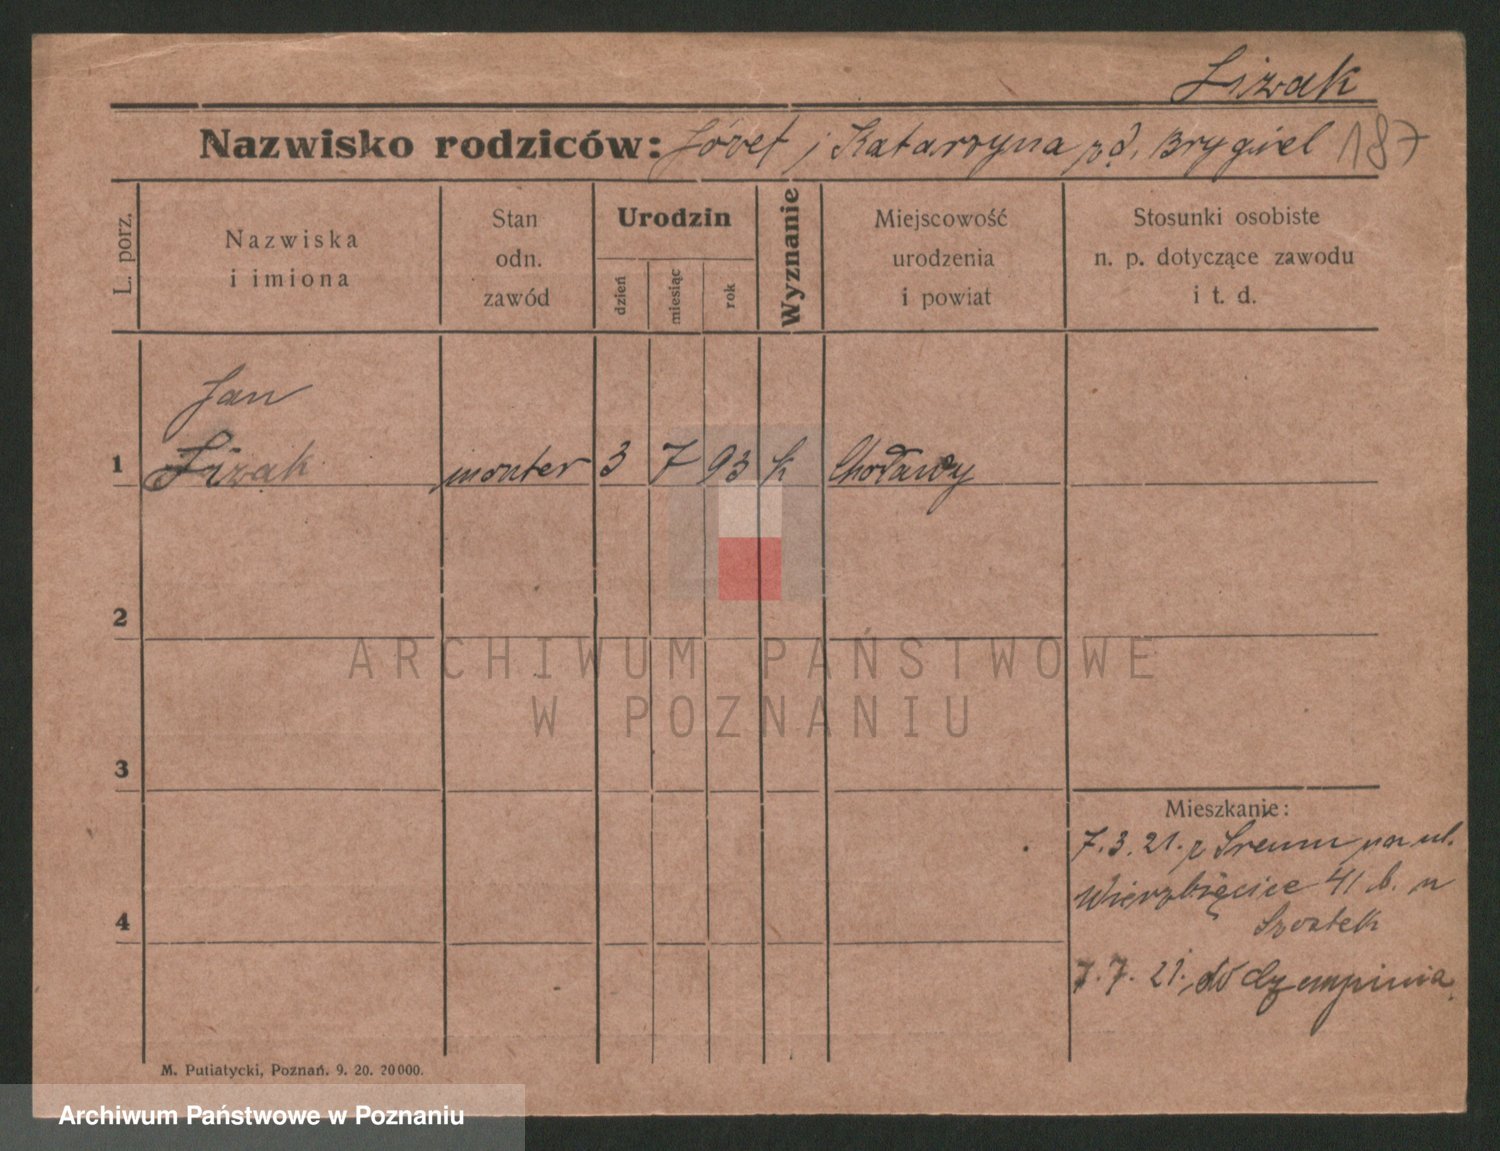 Lizak
Nazwisko rodziców: Józef i Katarzyna zd. Brygiel 187
L. porz.
Nazwiska
i imiona
Stan
odn.
zawód
Urodzin
dzień
miesiąc
rok
Wyznanie
Miejscowość
urodzenia
i powiat
Stosunki osobiste
n. p. dotyczące zawodu
i t. d.
Jan
1 Liżak monter 3 7 93 k
2
3
4
Mieszkanie:
7.3.21. z Śremu na ul.
Wierzbięcice 41 b. u
7.7.21. do
M. Putiatycki, Poznań. 9. 20. 20000.
ARCHIWUM PAŃSTWOWE
W POZNANIU
Archiwum Państwowe w Poznaniu